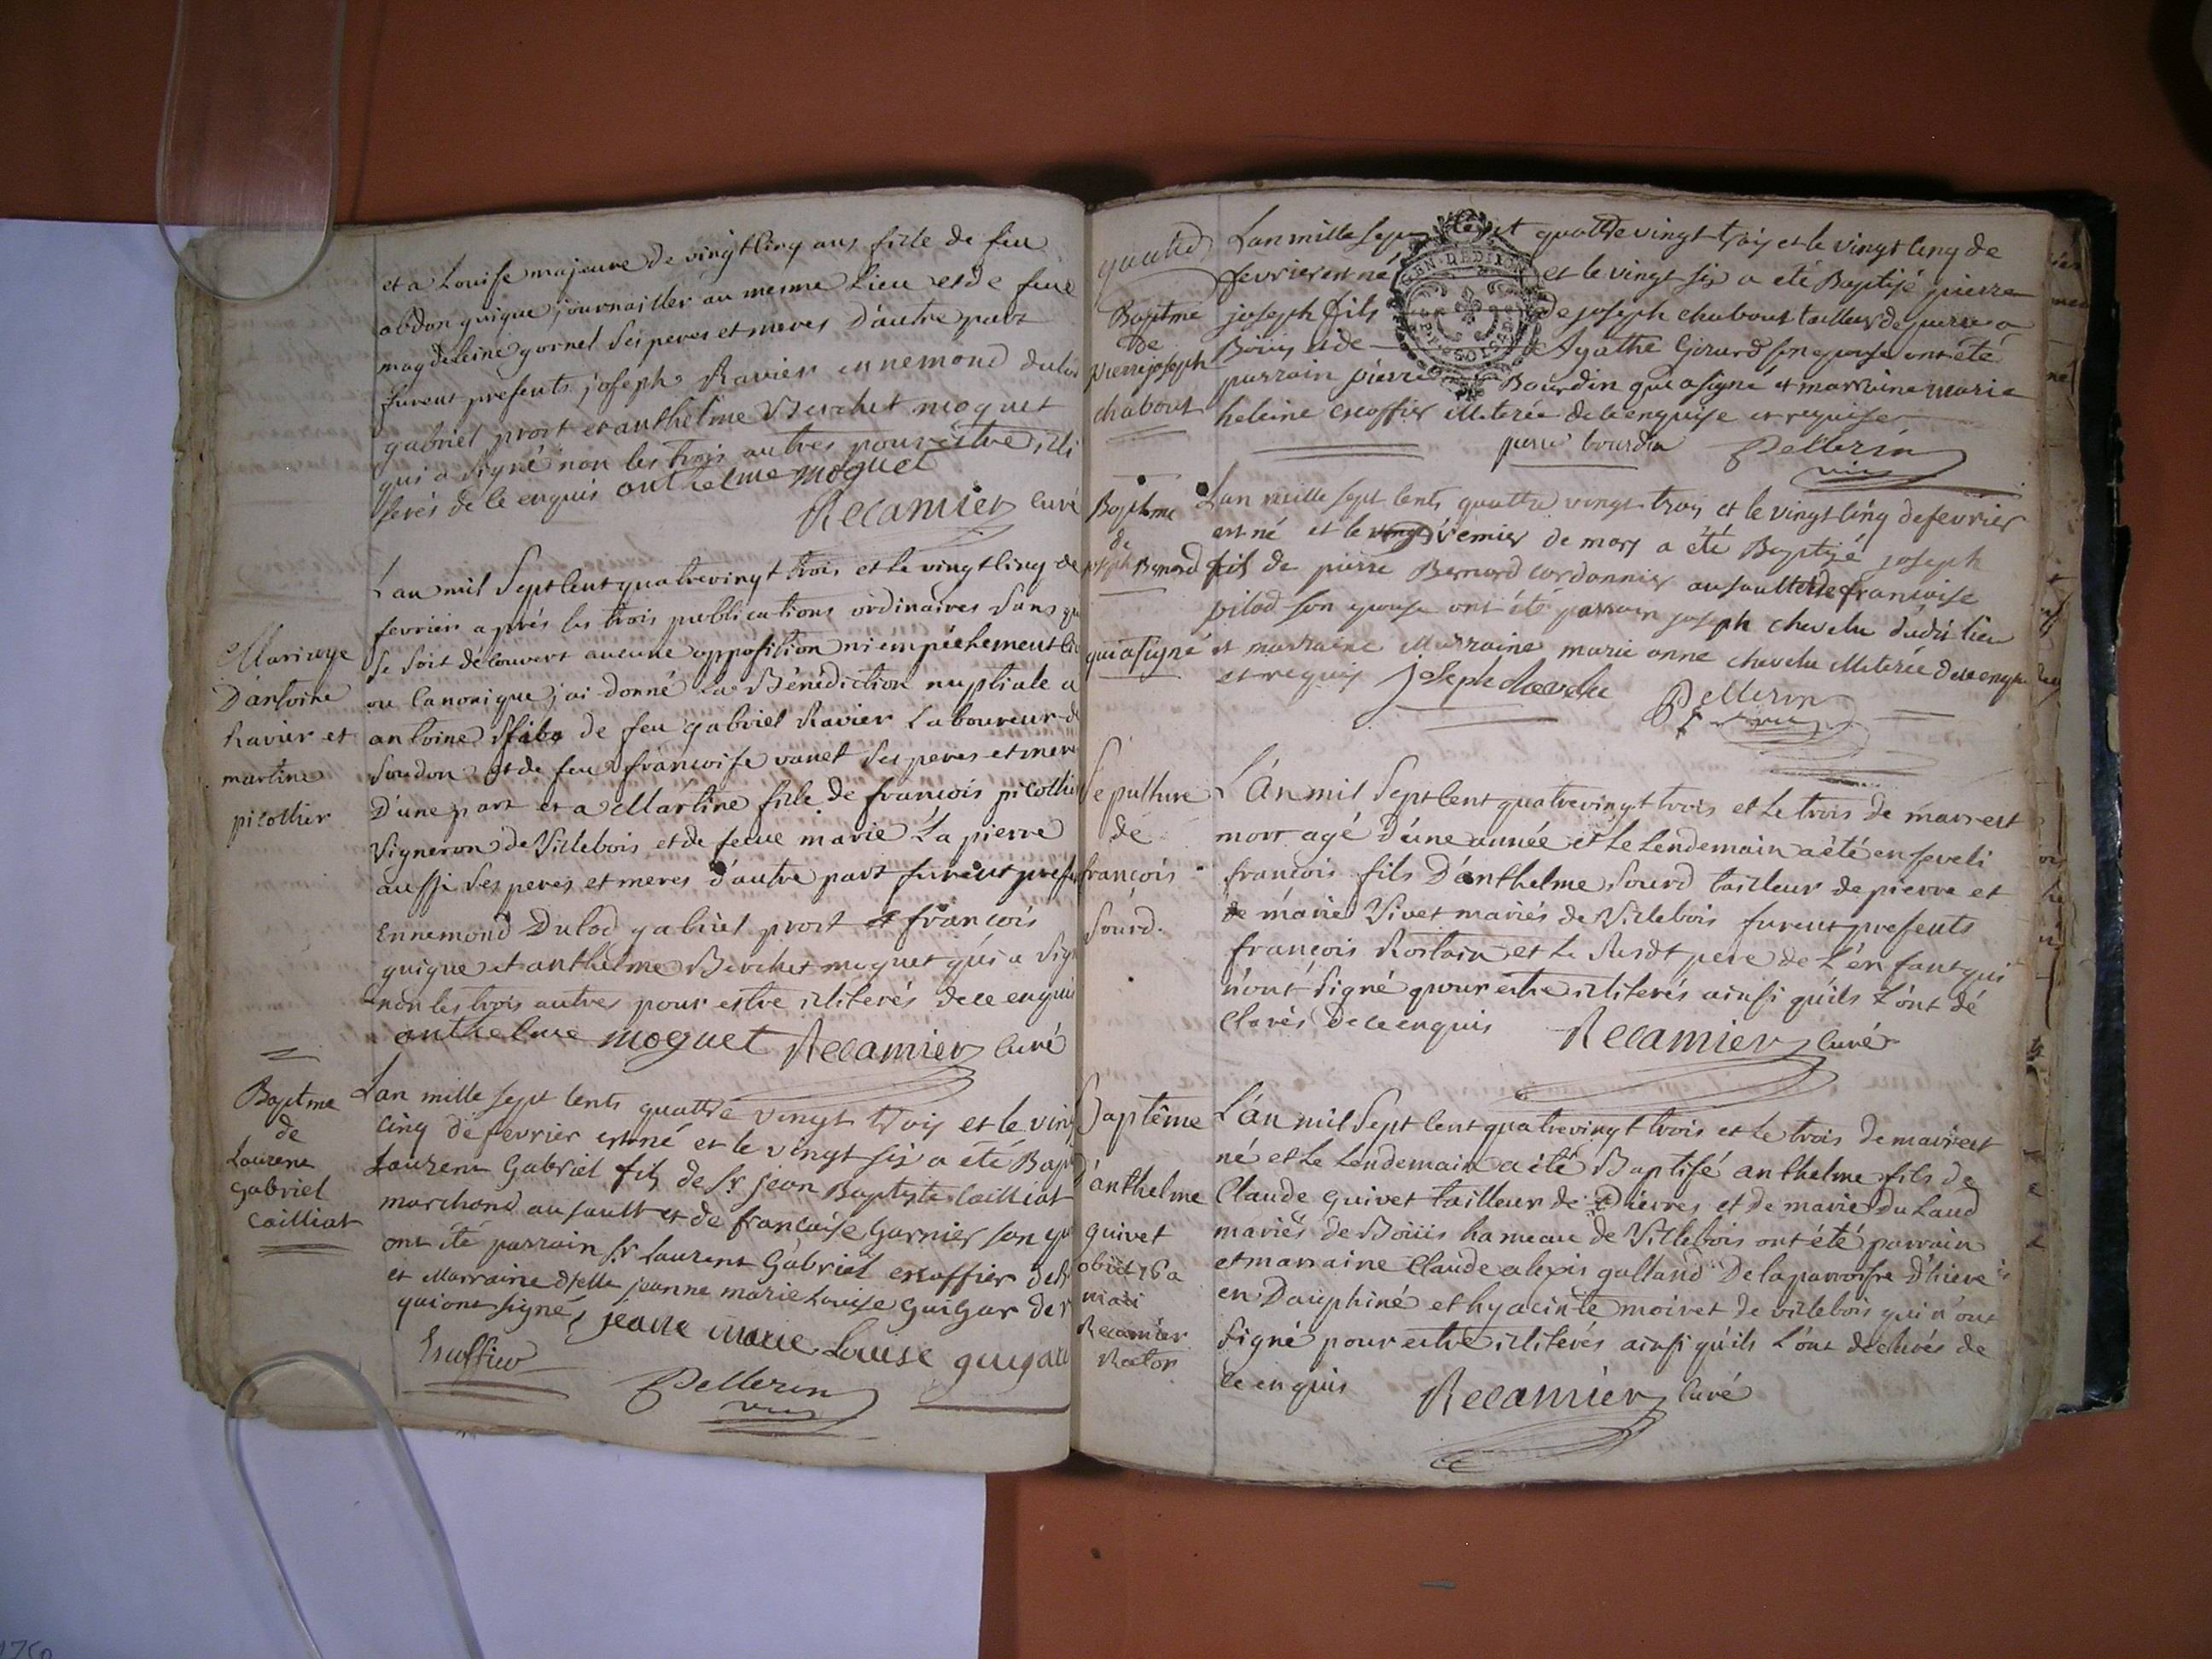 et a Louise majeure de vingtcinq ans fille de feu
abdon guigue journaillier au mesme Lieu et de feue
magdeleine gornel ses peres et meres D'autre part
furent presents joseph Ravier ennemond dulod
gabriel prost et anthelme Berchet moguet
qui a signé non les trois autres pour estre illi
terés de ce enquis anthelme moguet
Recamier curé
L'an mil Sept Cent quatrevingt trois et le vingtcinq de
fevrier aprés les trois publications ordinaires sans qu
Mariage
se soit decouvert aucune opposition ni empéchement
D'antoine
ou Canonique j'ai donné La Bénédiction nuptiale a
Ravier et
antoine de feu gabriel Ravier Laboureur de
martine
Soudon et de feue francoise vanet ses peres et mere
picollier
D'une part et a Martine fille de francois picollier
Vigneron de Villebois et de feue marie La pierre
aussi ses peres et meres d'autre part furent prese
Ennemond Dulod gabriel prost et francois
guigue et anthelme Berchet moguet qui a sig
non les trois autres pour estre illiterés de ce enquis
anthelme moguet Recamier Curé
Baptme
de
Laurent
Gabriel
Cailliat
Lan mille sept Cents quattre vingt trois et le ving
cinq de fevrier est né et le vingt six a été Bap
Laurent Gabriel fils de Sr jean Baptiste Cailliat
marchand au sault et de francoise Garnier son ep
ont été parrain Sr Laurent Gabriel escoffier de
et Marraine dselle jeanne marie Louise Guigar de
qui ont signé, jeane marie Louise guigar
Escoffier
Pellerin
vic
Lan mille sept Cent quattre vingt trois et le vingt cinq de
fevrier est né et le vingt six a été Baptisé pierre
Baptme
de
pierre joseph
chabout
joseph fils de joseph chabout tailleur de pierre a
Boüis et de Agathe Girard son epouse ont été
parrain pierre Bourdin qui a signé et marraine marie
heleine escoffier illiterée de ce enquise et requise
pierre bourdin Pellerin
vic
Baptme
de
joseph Bernard
Lan mille sept Cents quattre vingt trois et le vingt cinq de fevrier
est né et le premier de mars a été Baptisé joseph
fils de pierre Bernard cordonnier au sault et de francoise
pilod son epouse ont été parrain joseph chevelu dudit lieu
qui a signé et marraine Marraine marie anne chevelu illiterée de ce enquise
et requis joseph chevelu Pellerin
vic
Sepulture
de
francois
Sourd.
L'An mil Sept Cent quatrevingt trois et Le trois de mars est
mort agé d'une année et Le Lendemain a été enseveli
francois fils D'anthelme Sourd tailleur de pierre et
de marie Vivet mariés de Villebois furent presents
françois Rostain et Le Susdt pere de L'enfant qui
n'ont signé pour estre illiterés ainsi qu'ils L'ont dé
clarés de ce enquis Recamier Curé
Baptême
d'anthelme
guivet
obiit 16 a
maii
Recamier
Rector
L'An mil Sept Cent quatrevingt trois et Le trois de mars est
né et Le Lendemain a été Baptisé anthelme fils de
Claude guivet tailleur de Pierres et de marie Du Laud
mariés de Boüis hameau de Villebois ont été parrain
et marraine Claude alexis galland De la parroisse d'hiere
en Dauphiné et hyacinte moiret de villebois qui n'ont
Signé pour estre illiterés ainsi qu'ils L'ont déclarés de
Ce enquis Recamier Curé